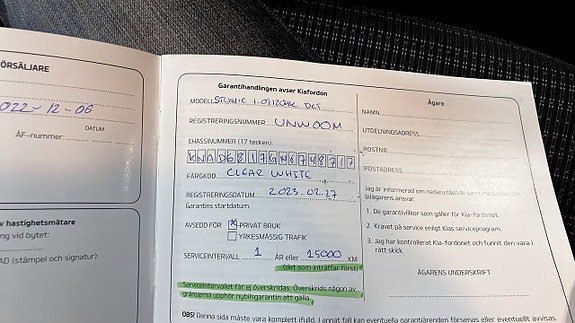 ÖRSÄLJARE
2022-12-06
DATUM
ÅF-nummer:
v hastighetsmätare
ng vid bytet:
AD (stämpel och signatur):
Garantihandlingen avser Kiafordon
MODELL STONIC 1.0 120HK DCT
REGISTRERINGSNUMMER UNW00M
CHASSINUMMER (17 tecken):
FÄRGKOD CLEAR WHITE
REGISTRERINGSDATUM 2023.02.27
Garantins startdatum.
AVSEDD FÖR X PRIVAT BRUK
YRKESMÄSSIG TRAFIK
SERVICEINTERVALL 1 ÅR eller 15000 KM
(det som inträffar först)
Serviceintervallet får ej överskridas. Överskrids någon av
gränserna upphör nybilsgarantin att gälla.
OBS! Denna sida måste vara komplett ifylld. I annat fall kan eventuella garantiärenden försenas eller eventuellt avvisas.
Ägare
NAMN
UTDELNINGSADRESS
POSTNR
POSTADRESS
Jag är informerad om nedanstående samt mottagit
bilägarens ansvar.
1. De garantivillkor som gäller för Kia-fordonet.
2. Kravet på service enligt Kias serviceprogram.
3. Jag har kontrollerat Kia-fordonet och funnit den vara i
rätt skick.
ÄGARENS UNDERSKRIFT